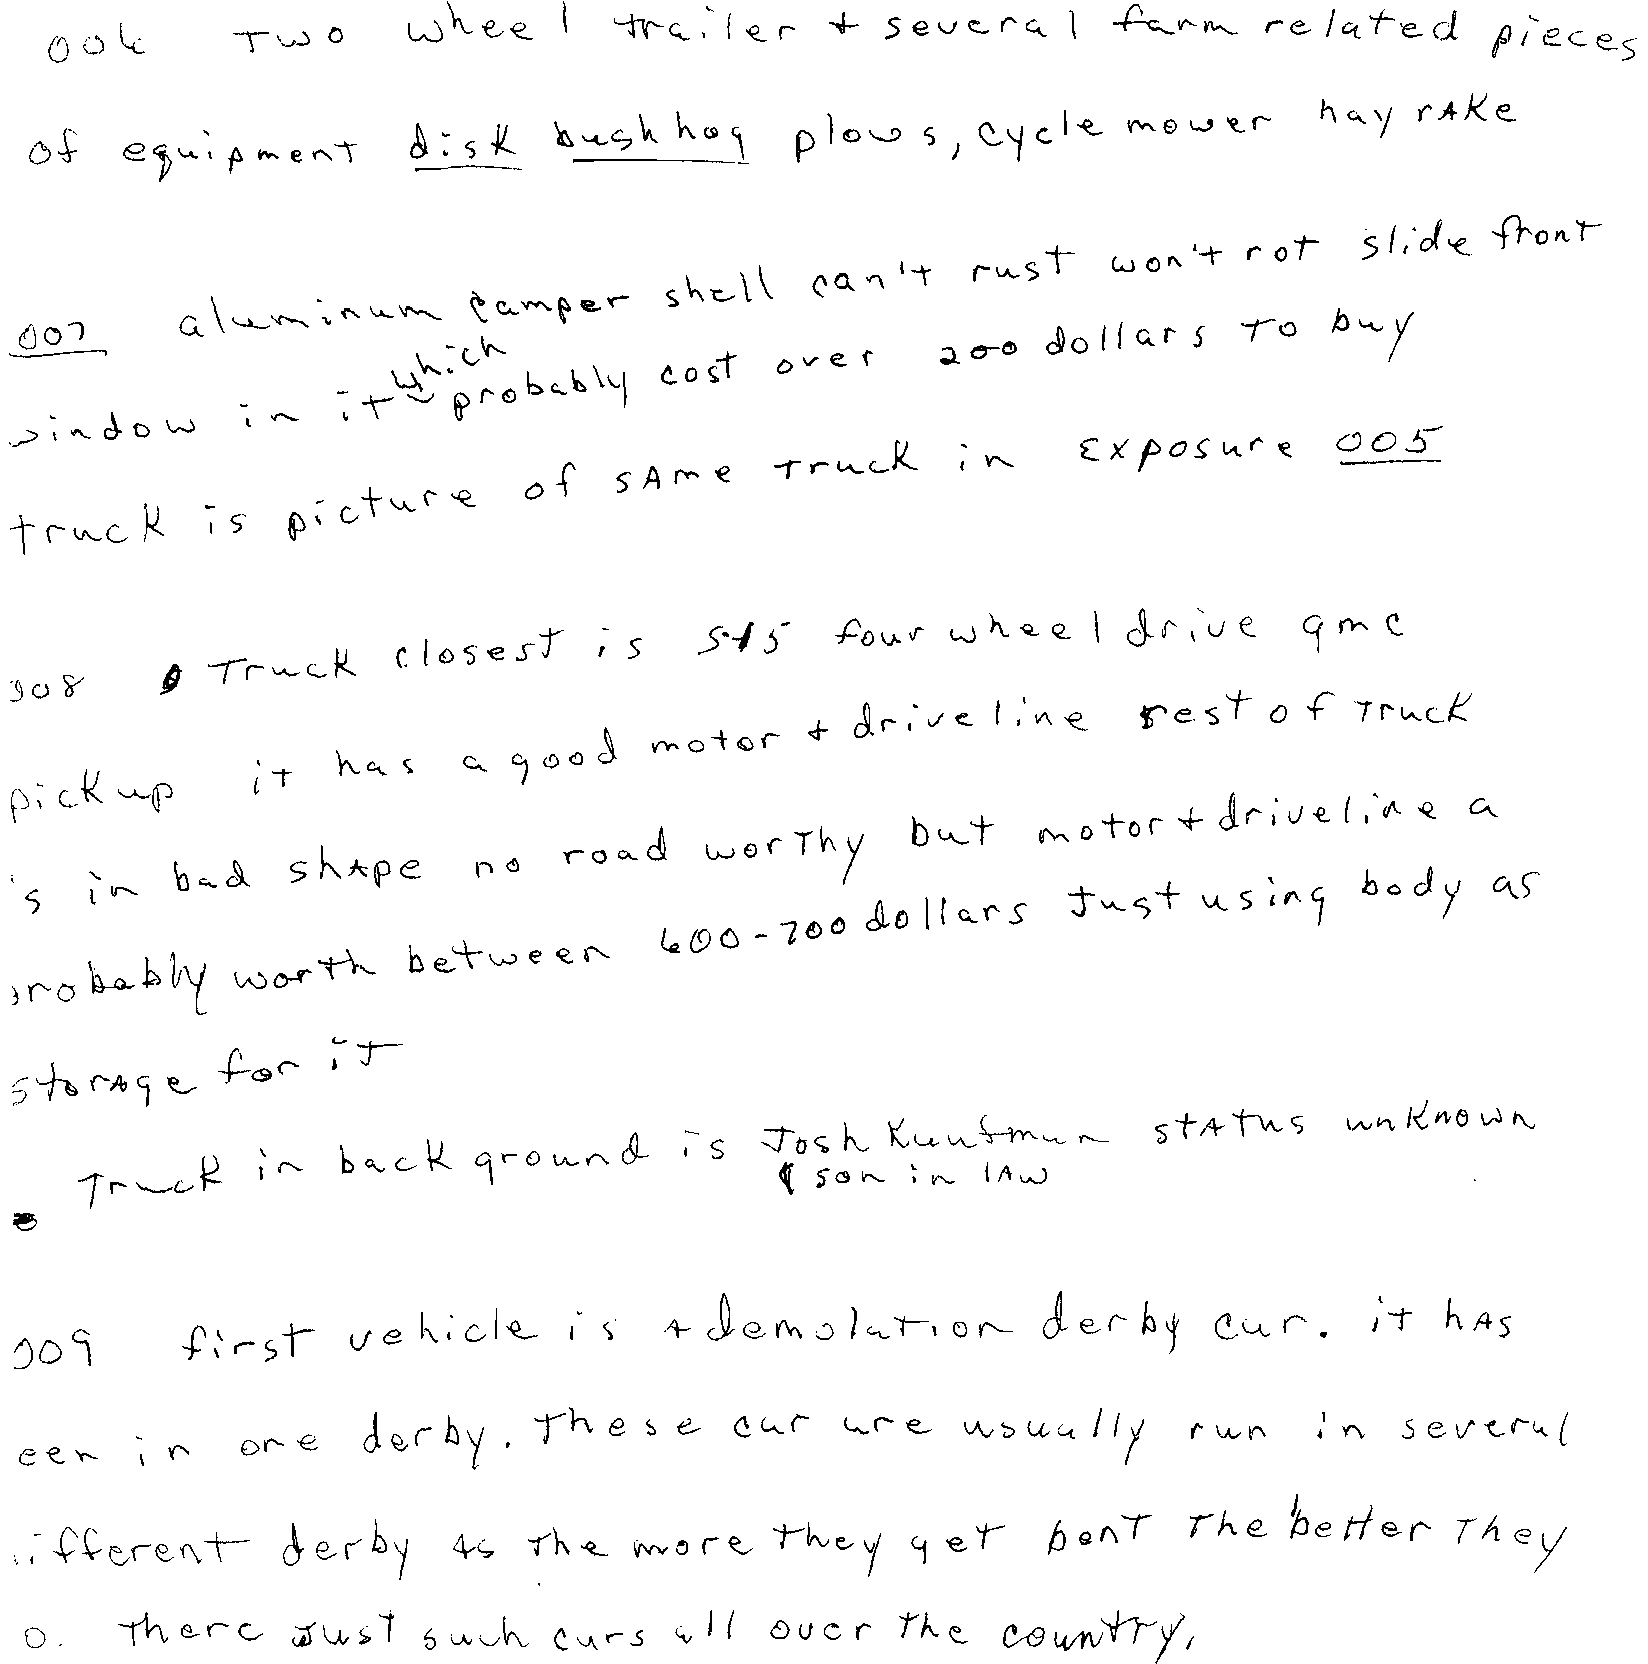 006 Two wheel trailer + several farm related pieces
of equipment disk bushhog plows, cycle mower hay rAKe
007 aluminum camper shell can't rust won't rot slide front
window in it which probably cost over 200 dollars to buy
truck is picture of sAme Truck in Exposure 005
008 Truck closest is S15 four wheel drive gmc
pickup it has a good motor + driveline rest of Truck
is in bad shape no road worthy but motor + driveline a
probably worth between 600-700 dollars Just using body as
storage for it
Truck in background is Josh status unknown
son in lAw
009 first vehicle is a demolation derby car. it hAs
een in one derby. These car are usually run in several
ifferent derby as the more they get bent The better They
o. There Just such cars all over the country.